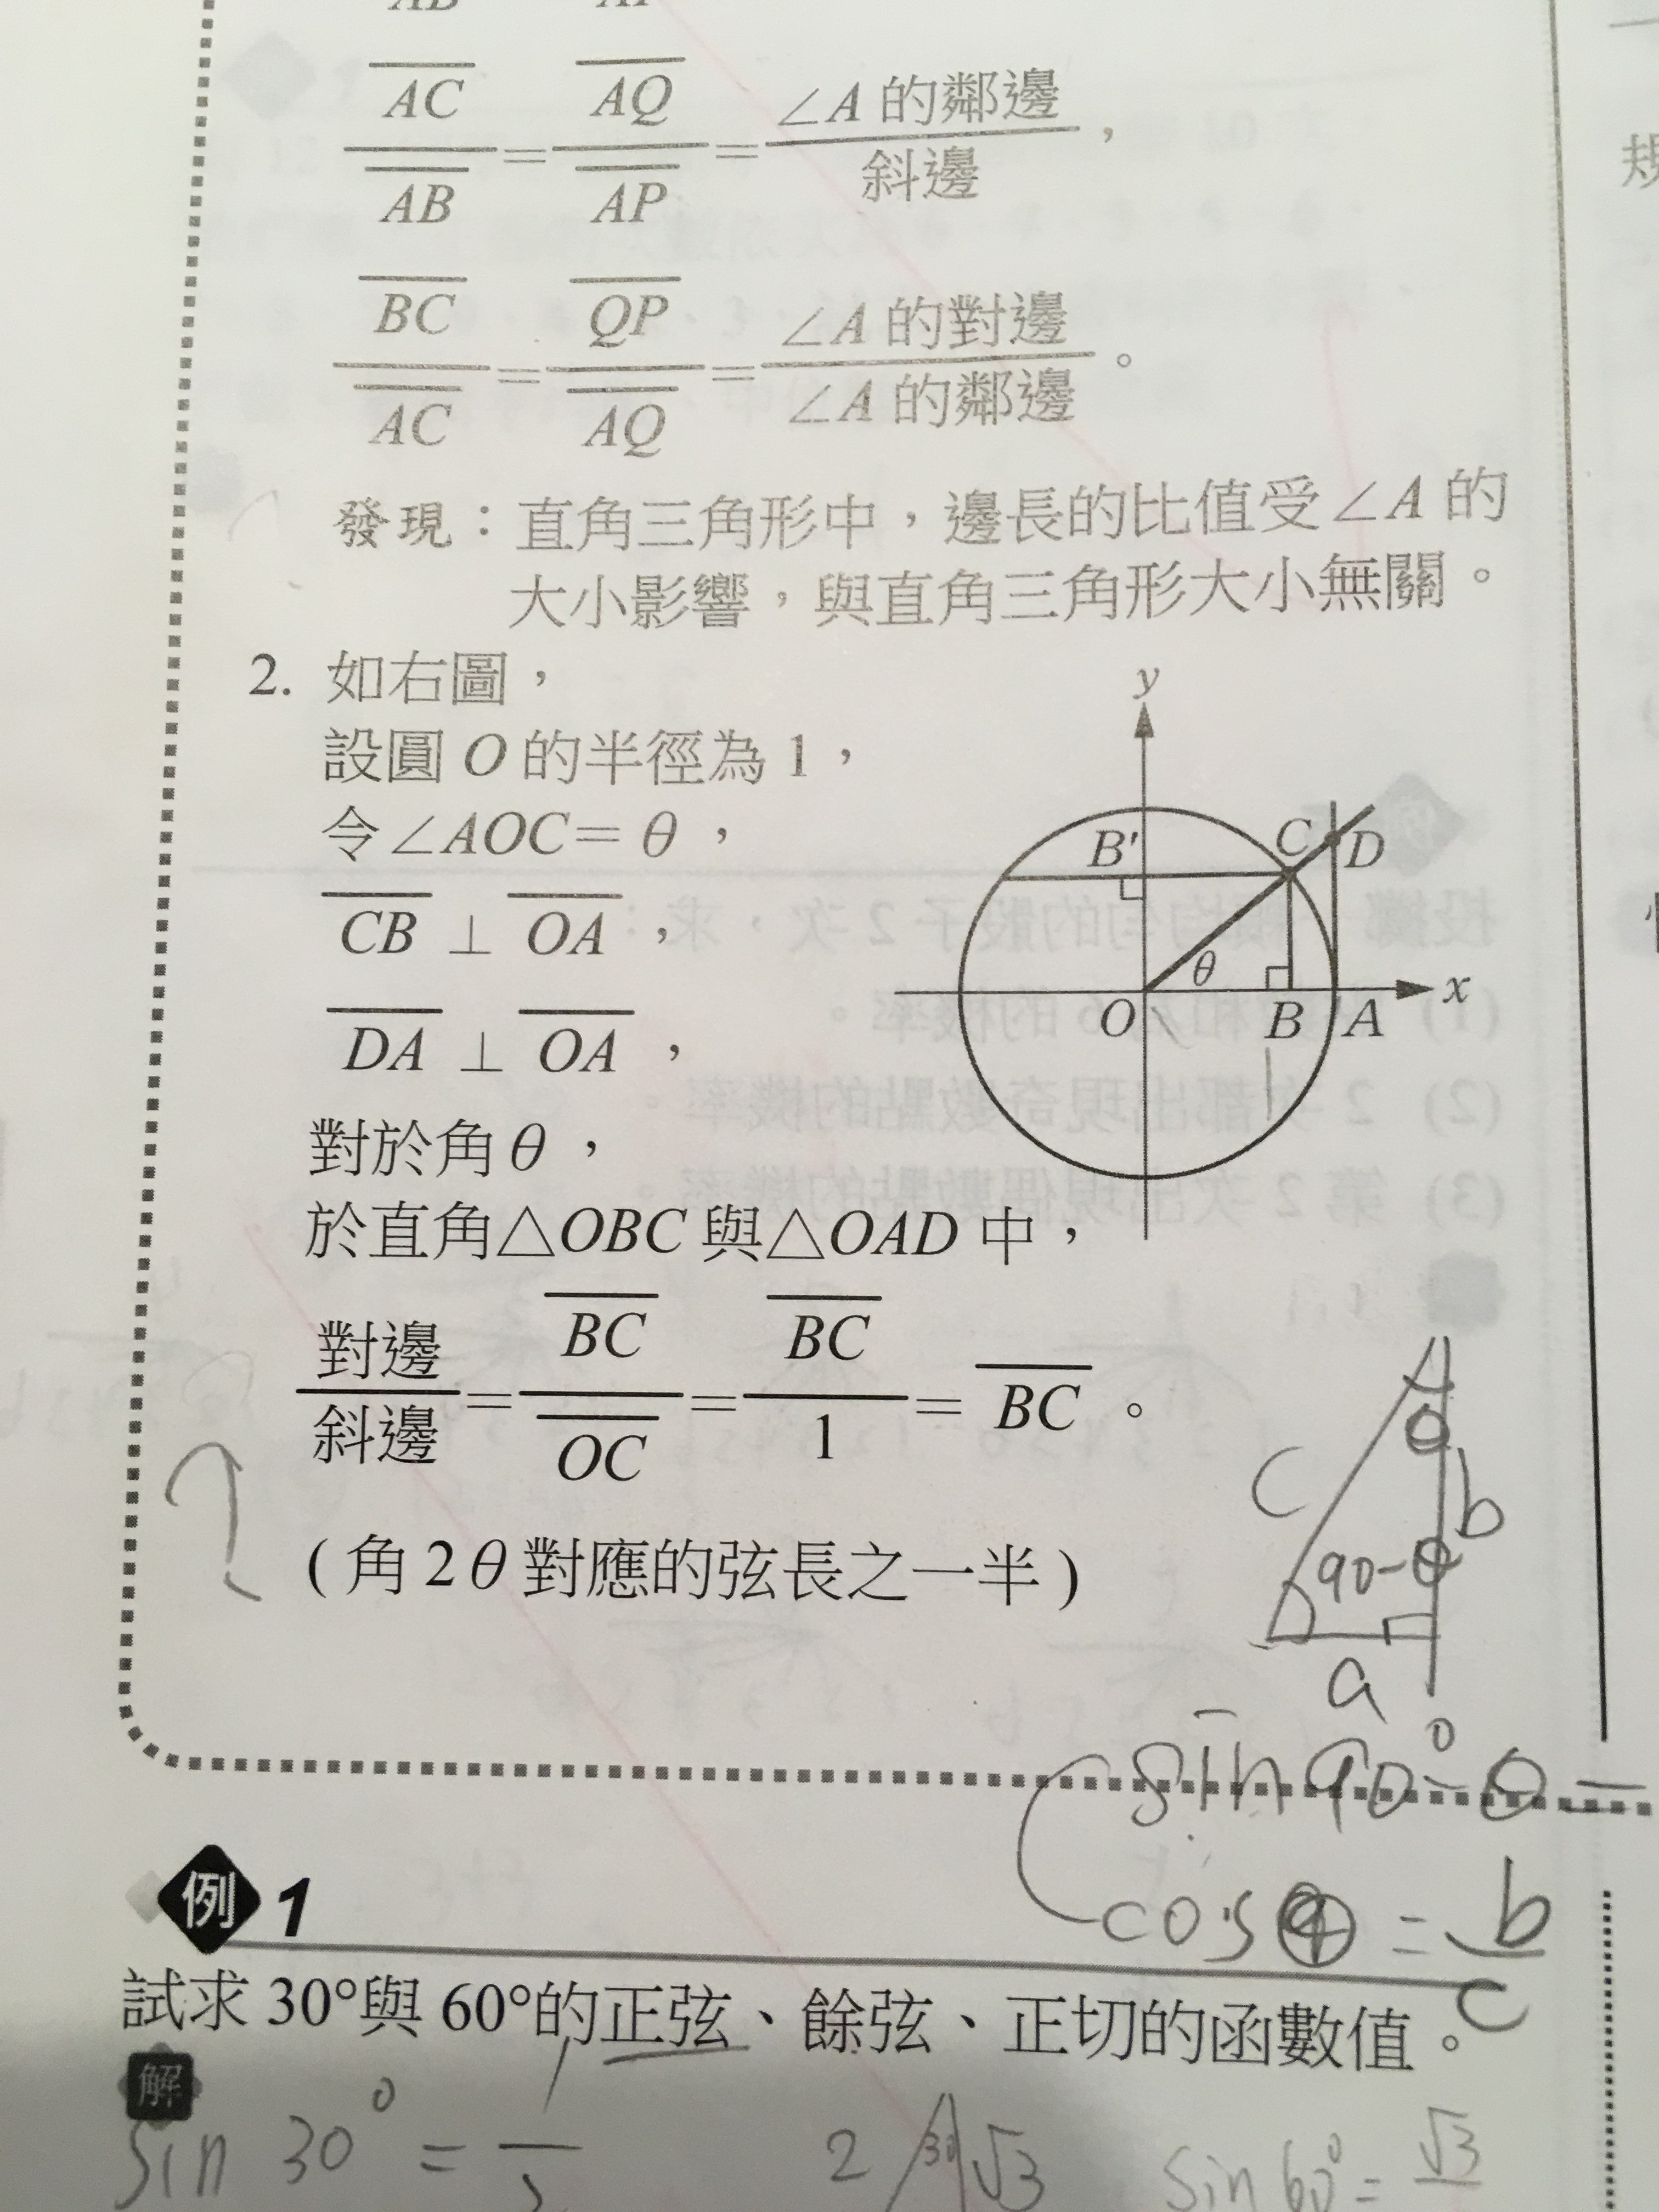 AC/AB = AQ/AP = ∠A 的鄰邊/斜邊，
BC/AC = QP/AQ = ∠A 的對邊/∠A 的鄰邊。
發現：直角三角形中，邊長的比值受∠A 的
大小影響，與直角三角形大小無關。
2. 如右圖，
設圓 O 的半徑為 1，
令∠AOC= θ，
CB ⊥ OA，
DA ⊥ OA，
y
B' C D
θ
x
O B A
對於角 θ，
於直角△OBC 與△OAD 中，
對邊/斜邊 = BC/OC = BC/1 = BC。
(角 2θ 對應的弦長之一半)
θ
c
b
90-θ
a
sin 90°-θ =
cos θ = b/c
例 1
試求 30°與 60°的正弦、餘弦、正切的函數值。
解
sin 30° = 1/2
2 30 √3
sin 60° = √3